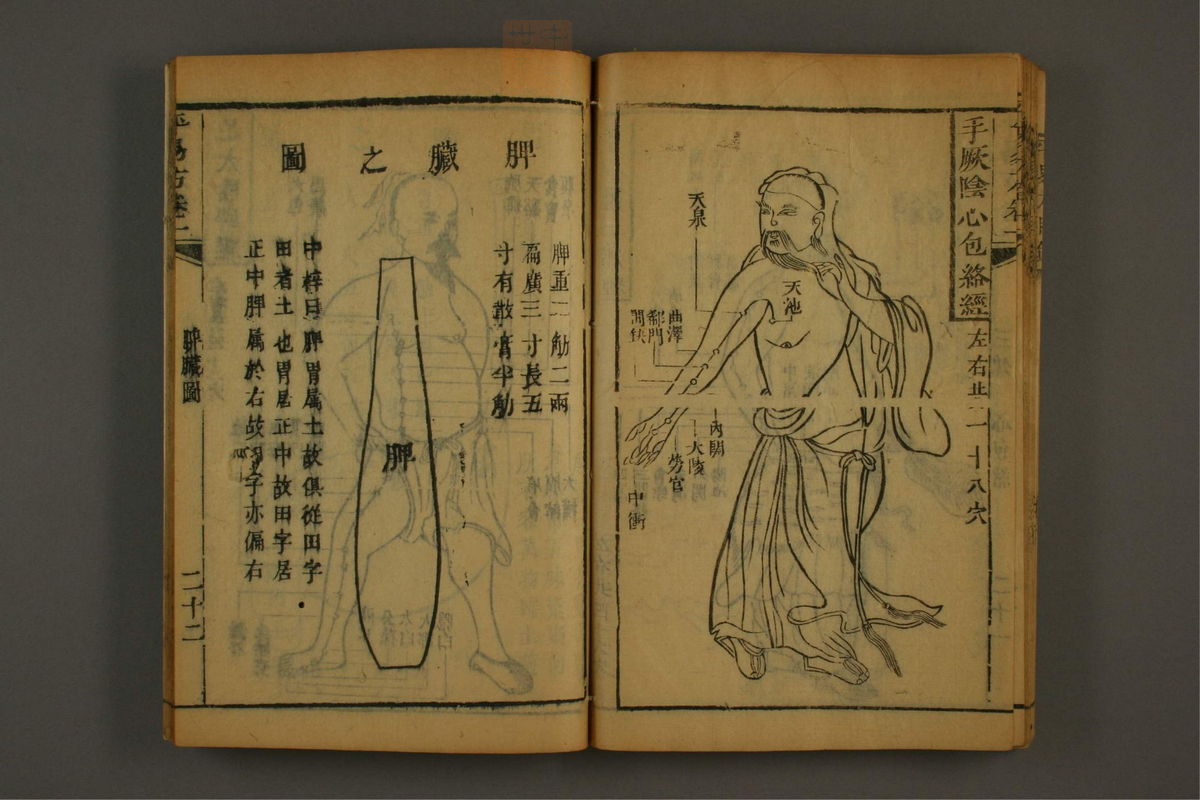 手厥陰心包絡經
左右共一十八穴
天泉
天池
曲澤
郄門
間使
內關
大陵
勞宮
中衝
脾臟之圖
脾重二觔二兩
扁廣三寸長五
寸有散膏半觔
脾
中梓曰脾胃属土故俱從田字
田者土也胃居正中故田字居
正中脾属於右故田字亦偏右
脾臟圖
二十二